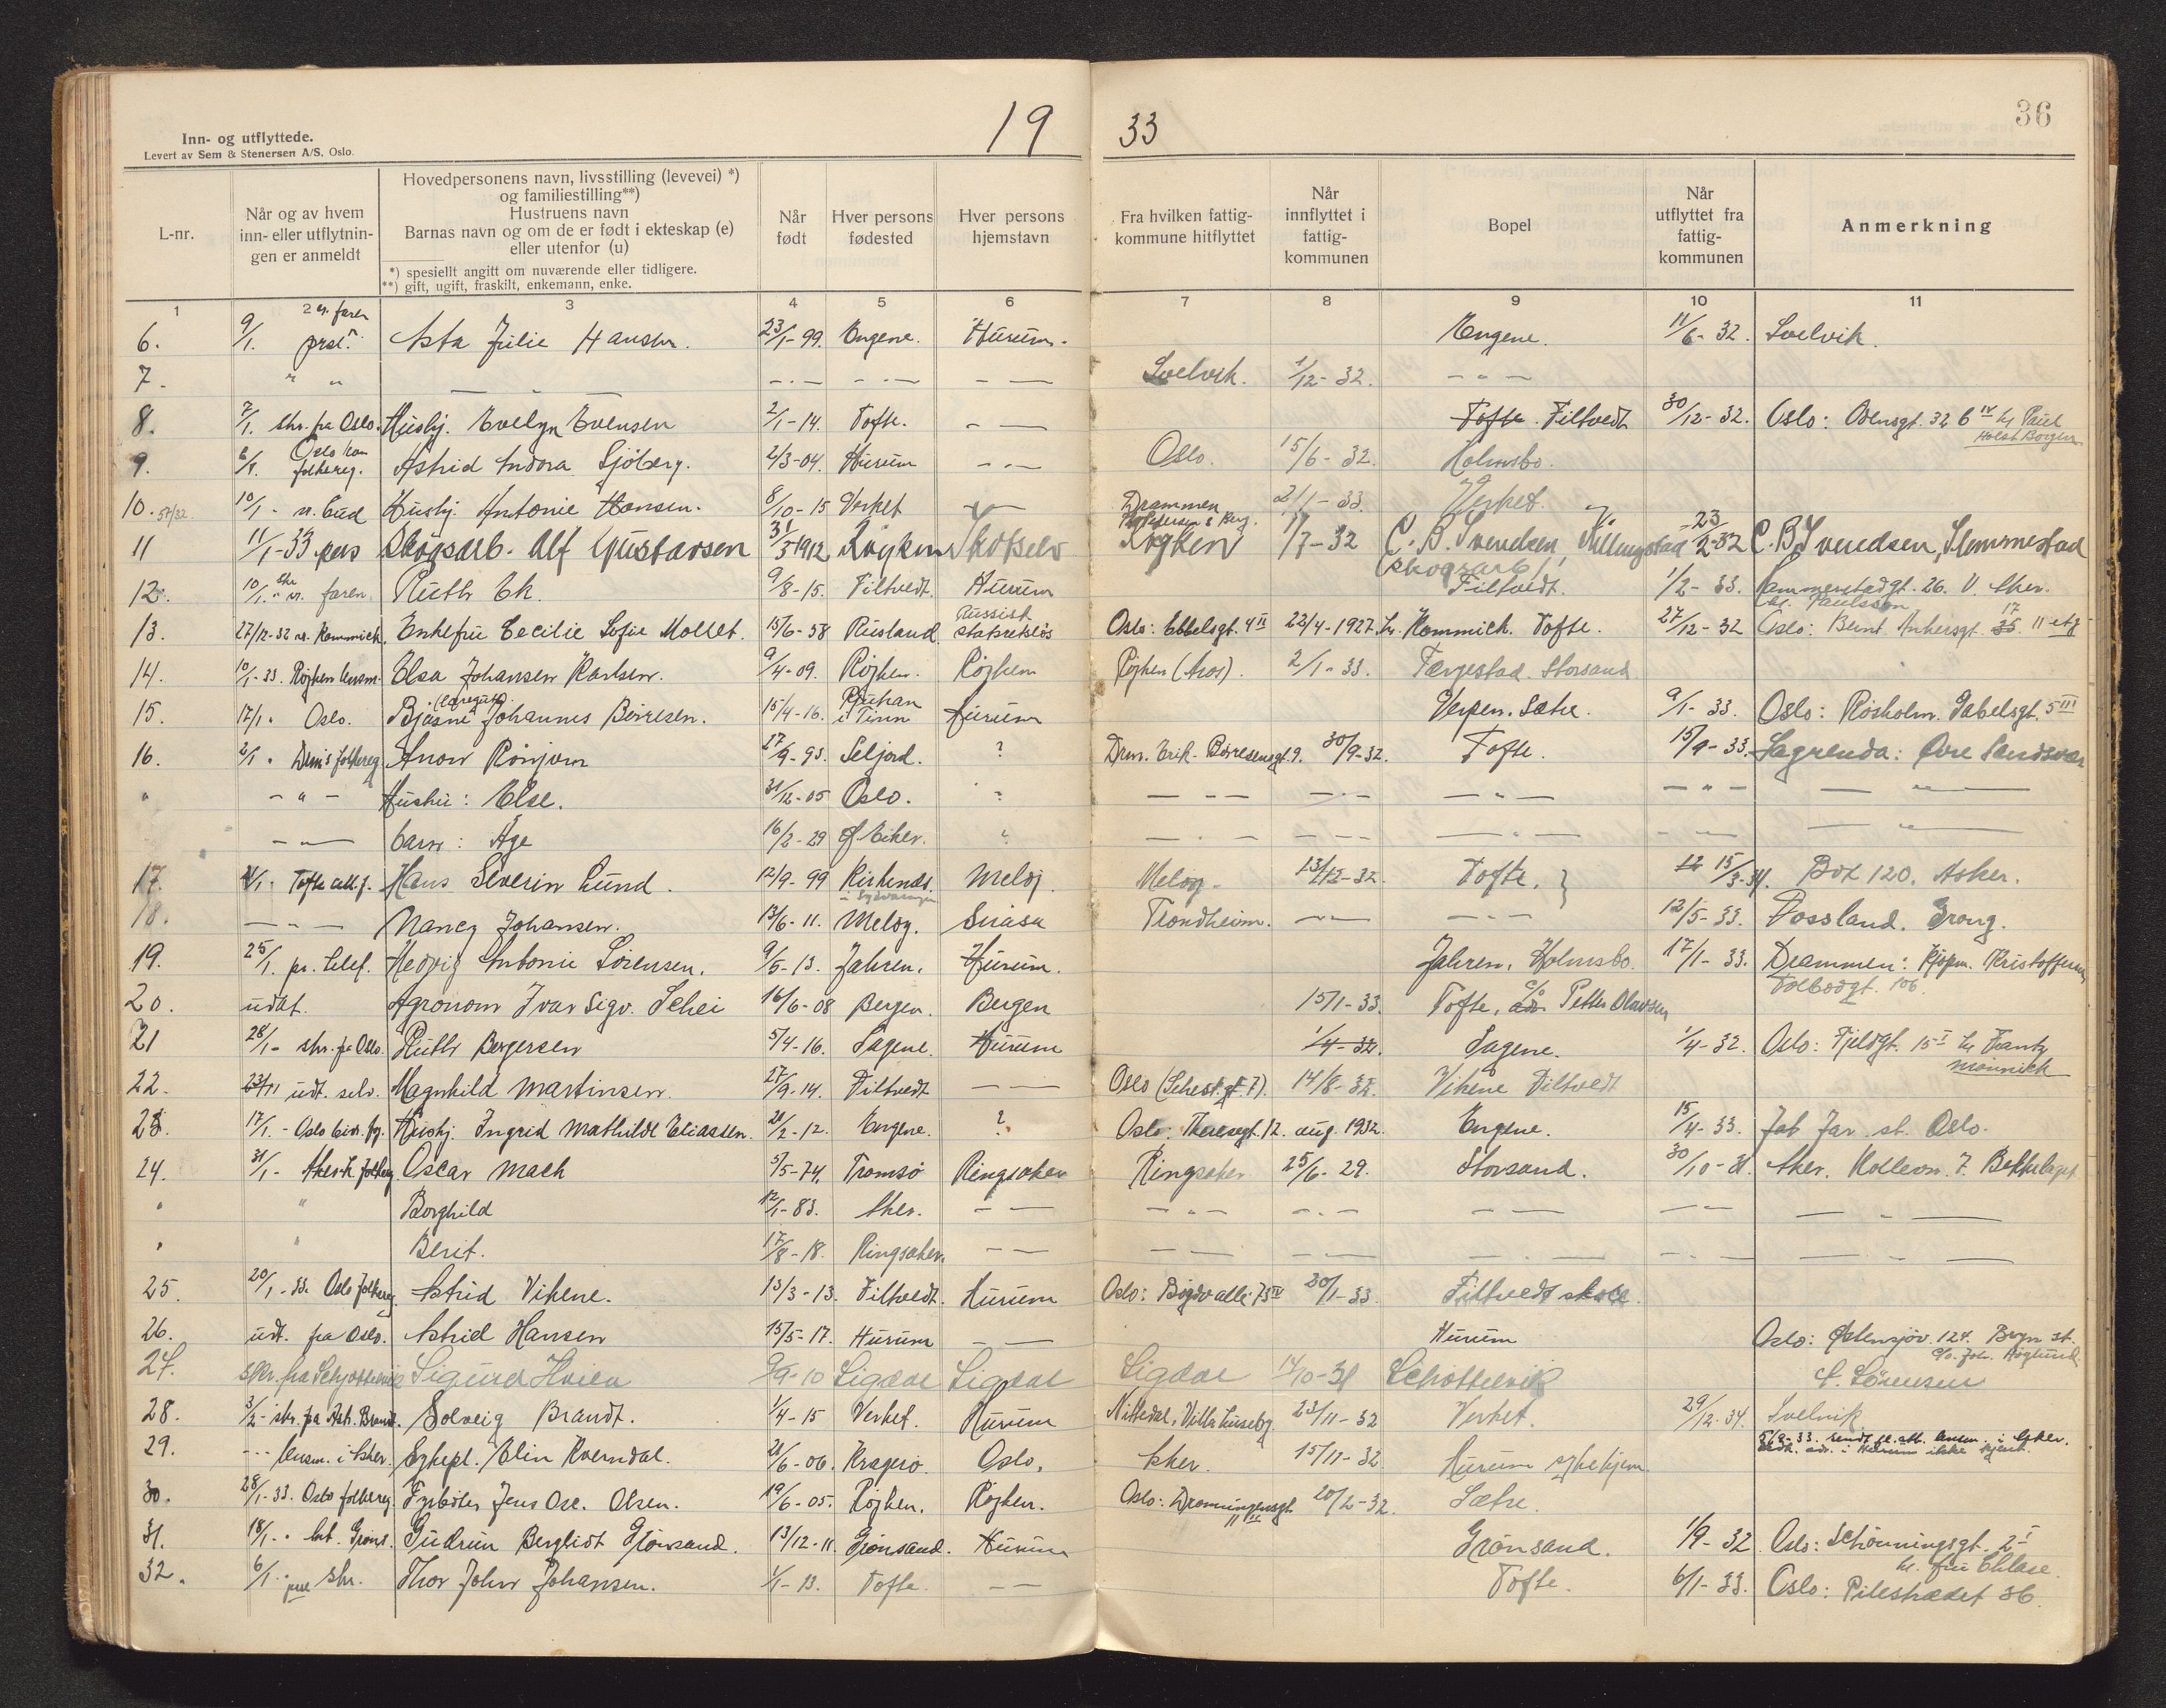 19 33
36
Inn- og utflyttede.
Levert av Sem & Stenersen A/S, Oslo.
L-nr. | Når og av hvem inn- eller utflytningen er anmeldt | Hovedpersonens navn, livsstilling (levevei) *) og familiestilling**) Hustruens navn Barnas navn og om de er født i ekteskap (e) eller utenfor (u) *) spesiellt angitt om nuværende eller tidligere. **) gift, ugift, fraskilt, enkemann, enke. | Når født | Hver persons fødested | Hver persons hjemstavn | Fra hvilken fattigkommune hitflyttet | Når innflyttet i fattigkommunen | Bopel | Når utflyttet fra fattigkommunen | Anmerkning
1 2 3 4 5 6 7 8 9 10 11
6. 9/1. v. faren Asta Julie Hansen. 23/1-99. Engene. Hurum. Engene. 11/6-32. Svelvik.
7. " " — - — - — — Svelvik. 1/12-32. - " -
8. 7/1. skr. fra Oslo. Hushj. Evelyn Evensen 2/1-14. Tofte. - — Tofte. Filtvedt 30/12-32. Oslo: Odensgt. 32 b IV hr Paul Holst Borgen
9. folkereg. Astrid Andora Sjöberg. 2/3-04. Hurum - — Oslo. 15/6-32. Holmsbo.
10. 57/32 10/1- v. bud Hushj. Antonie Hansen. 8/10-15 Verket - — Drammen 2/1-33. Verket.
11 11/1-33 pers Skogsarb. Alf Gustavsen 31/3-1912 Røyken Skotselv Røyken 1/7-32 C. B. Svendsen, (skogsarb) 23/2-32 C. B. Svendsen, Slemmestad
12. 10/1. " v. faren. Ruth Ek. 9/8-15. Filtvedt. Hurum Filtvedt. 1/2-33. Hammerstadgt. 26. V. Aker. hr. Paulsson
13. 27/12-32 v. Kemmich. Enkefru Cecilie Sofie Mollet. 15/6-58 Rusland Russisk statsløs Oslo: Ebbelsgt. 4 II 22/4-1927. hr. Kemmich. Tofte. 27/12-32 Oslo: Bernt Ankersgt. 17 35. II etg
14. 10/1-33. Røyken lensm. Elsa Johansen Karlsen. 9/4-09. Røyken. Røyken Røyken (Åros). 2/1-33. Færgestad. Storsand.
15. 17/1. Oslo. Bjarne Johannes Børresen. 15/4-16. Rjukan i Tinn Hurum Verpen. Sætre. 9/1-33. Oslo: Rosholm. Gabelsgt. 5 III
16. 2/1. Drm.s folkereg Arnor Rönjom 27/9-93. Seljord. ? Drm. Erik Børresensgt. 9. 30/9-32. Tofte. 15/9-33. Sagrenda: Øvre Sandsvær
" - " - Hustru: Else. 31/12-05 Oslo. " — - — - — - — - " - - " - — " —
- — barn: Åge 16/2-29 Ø. Eiker. " — - — - — - — - — — " —
17. Tofte cell.f. Hans Severin Lund. 12/9-99 Kirkenes. Meløy. Meløy. 13/12-32. Tofte. } 15/3-34. Box 120. Asker.
18. - — - Nancy Johansen. 13/6-11. Meløy. Snåsa Trondheim. - — - — - 12/5-33. Fossland. Grong.
19. 25/1. pr. telef. Hedvig Antonie Sörensen. 9/5-13. Jahren. Hurum. Jahren, Holmsbo. 17/1-33. Drammen: Kjøpm. Kristoffersen Tolbodgt. 106.
20. udat. Agronom Ivar Sigv. Schei 16/6-08 Bergen. Bergen 15/1-33. Tofte, c/o Petter Olavsen
21 28/1- skr. fra Oslo. Ruth Bergersen 5/4-16. Sagene. Hurum 1/4-32. Sagene. 1/4-32. Oslo: Fjeldgt. 15 I hr Frantz Mönnich
22. 23/11 udt. selv. Magnhild Martinsen. 27/9-14. Filtvedt - — Oslo (Sehest.gt. 7). 14/8-32. Vikene Filtvedt
23. 17/1. - Oslo Hushj. Ingrid Mathilde Eliassen. 20/2-12. Engene. ? Oslo. Theresegt. 12. aug. 1932. Engene. 15/4-33. Jab Jar st. Oslo.
24. 31/1- Aker folkereg. Oscar Mack 5/5-74. Tromsø Ringsaker Ringsaker 25/6-29. Storsand. 30/10-31. Aker. Kollevn. 7. Bekkelaget
" " Borghild 12/1-83. Aker. - — - " - - — - — - — — " —
" " Berit. 17/8-18. Ringsaker. - — - — - — - — - — — - —
25. 20/1-33. Oslo folkereg. Astrid Vikene. 13/3-13. Filtvedt. Hurum Oslo: Bygdø alle 73 IV 20/1-33. Filtvedt skole.
26. udt. fra Oslo. Astrid Hansen 15/5-17. Hurum - — Hurum Oslo: Østensjøv. 124. Bryn st. c/o. Joh. Høglund.
27. skr. fra Schjøttelvik Sigurd Hvien 9/9-10 Sigdal Sigdal Sigdal 14/10-31 Schøttelvik S. Sörensen
28. 3/2- skr. fra Ash. Brandt. Solveig Brandt. 1/4-15 Verket. Hurum Nittedal, Villa Luseby 23/11-32 Verket. 29/12-34. Svelvik.
29. --- lensm. i Asker. Sykepl. Elin Kverndal. 20/6-06. Kragerø. Oslo. Asker. 15/11-32. Hurum sykehjem. 5/2-33. sendt fl.att. lensm. i Asker. adr. i Hurum ikke kjent.
30. 28/1-33. Oslo folkereg. Fyrbøter Jens Osc. Olsen. 19/6-05. Røyken. Røyken. Oslo: Dronningensgt. 11 III 20/2-32. Sætre.
31. 18/1. " Gudrun Bergliot Grønsand. 13/12-11. Grønsand. Hurum Grønsand. 1/9-32 Oslo: Schønningsgt. 2 I hr. fru
32. 6/1. skr. Thor John Johansen. 1/1-13. Tofte. - — Tofte. 6/1-33. Oslo: Pilestrædet 36.